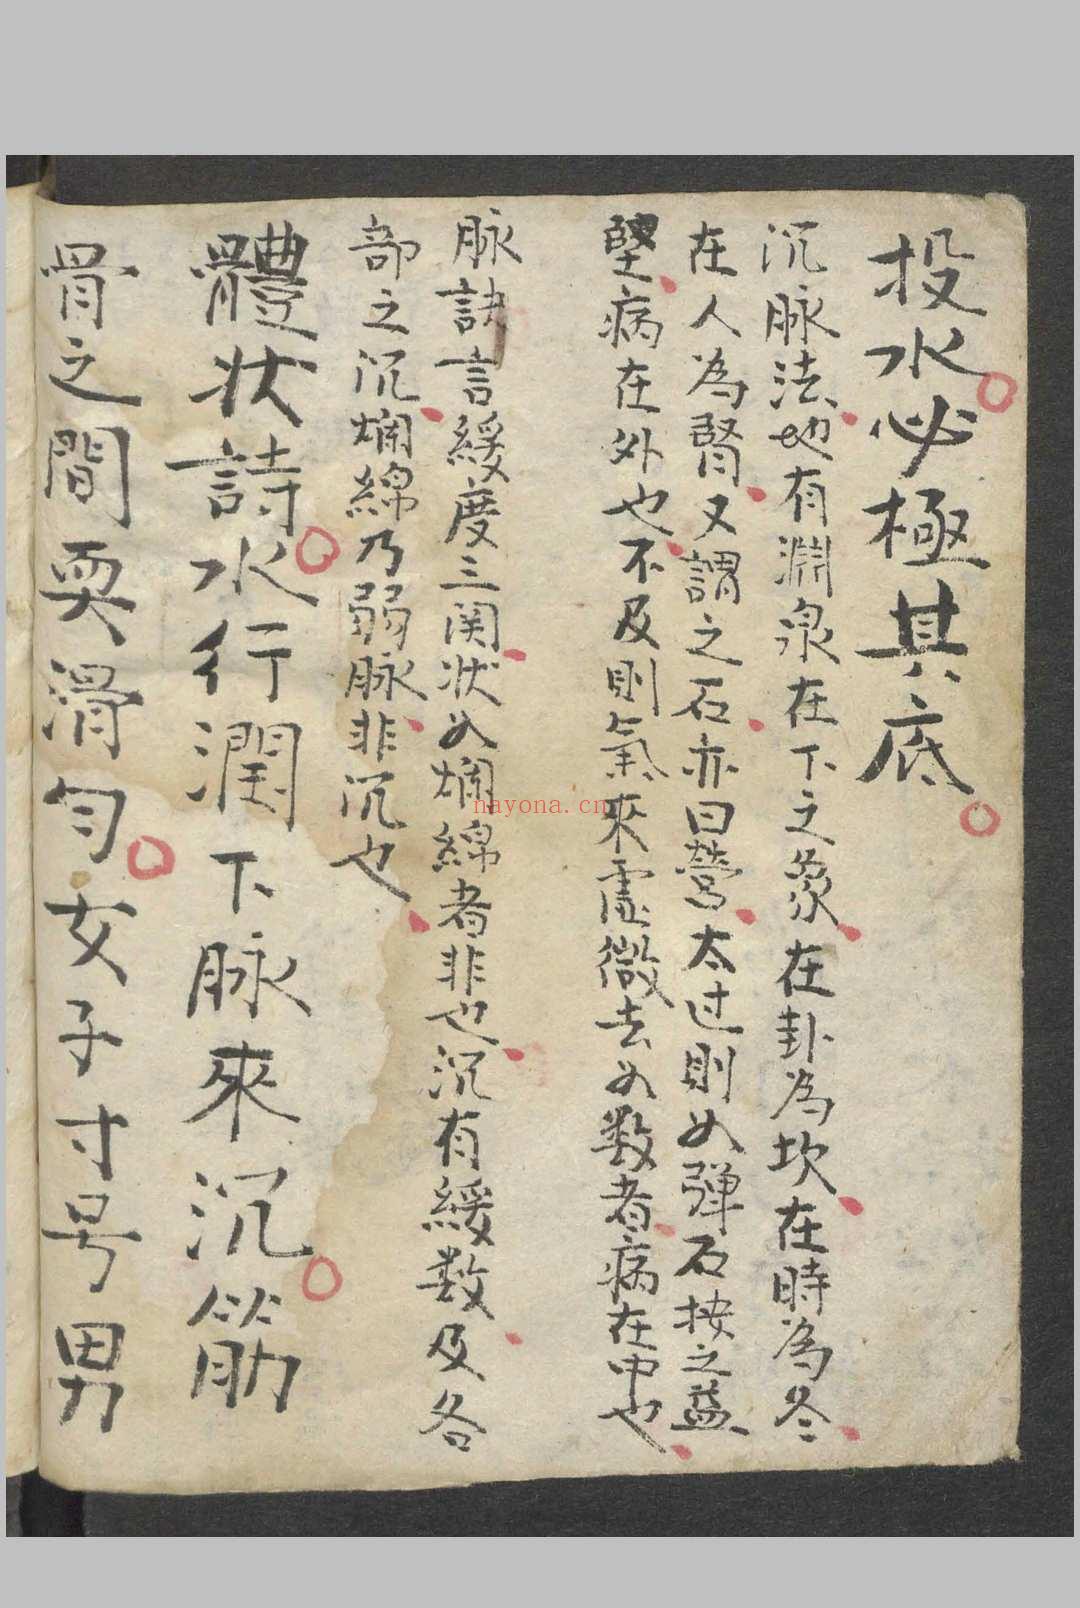 投水必極其底
沉脉法地有淵泉在下之象在卦為坎在時為冬
在人為腎又謂之石亦曰營太过則如彈石按之益
堅病在外也不及則氣來虛微去如数者病在中也
脉訣言緩度三関状如爛綿者非也沉有緩数及各
部之沉爛綿乃弱脉非沉也
體状詩水行潤下脉來沉筋
骨之間耎滑匀女子寸号男
nayona.cn